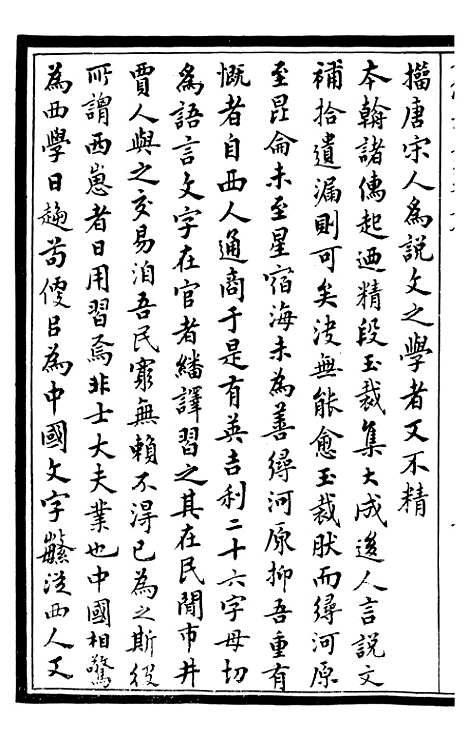 擂唐宋人爲說文之學者又不精
本翰諸儔起迺精段玉裁集大成後人言說文
補拾遺漏則可矣决無能愈玉裁肰而㝷河原
至昆侖未至星宿海未為善㝷河原抑吾重有
慨者自西人通商于是有英吉利二十六字母切
爲語言文字在官者繙譯習之其在民閒市井
賈人與之交易洎吾民窮無賴不淂已為之斯役
所謂西崽者日用習焉非士大夫業也中國相驚
為西學日趨苟僾㠯為中國文字緐涩西人又